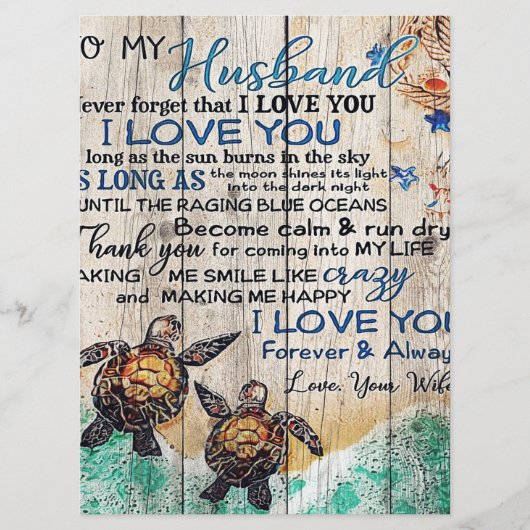 O MY Husband
ever forget that I LOVE YOU
I LOVE YOU
long as the sun burns in the sky
S LONG AS the moon shines its light
into the dark night
UNTIL THE RAGING BLUE OCEANS
Become calm & run dry
Thank you for coming into MY LIFE
AKING ME SMILE LIKE crazy
and MAKING ME HAPPY
I LOVE YOU
Forever & Alway
Love, Your Wife